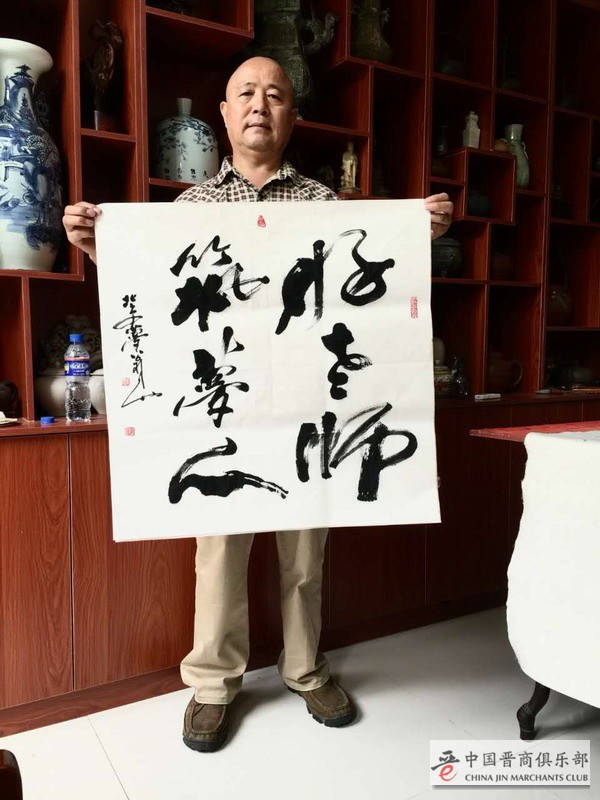 好老师
筑夢人
中国晋商俱乐部
CHINA JIN MARCHANTS CLUB